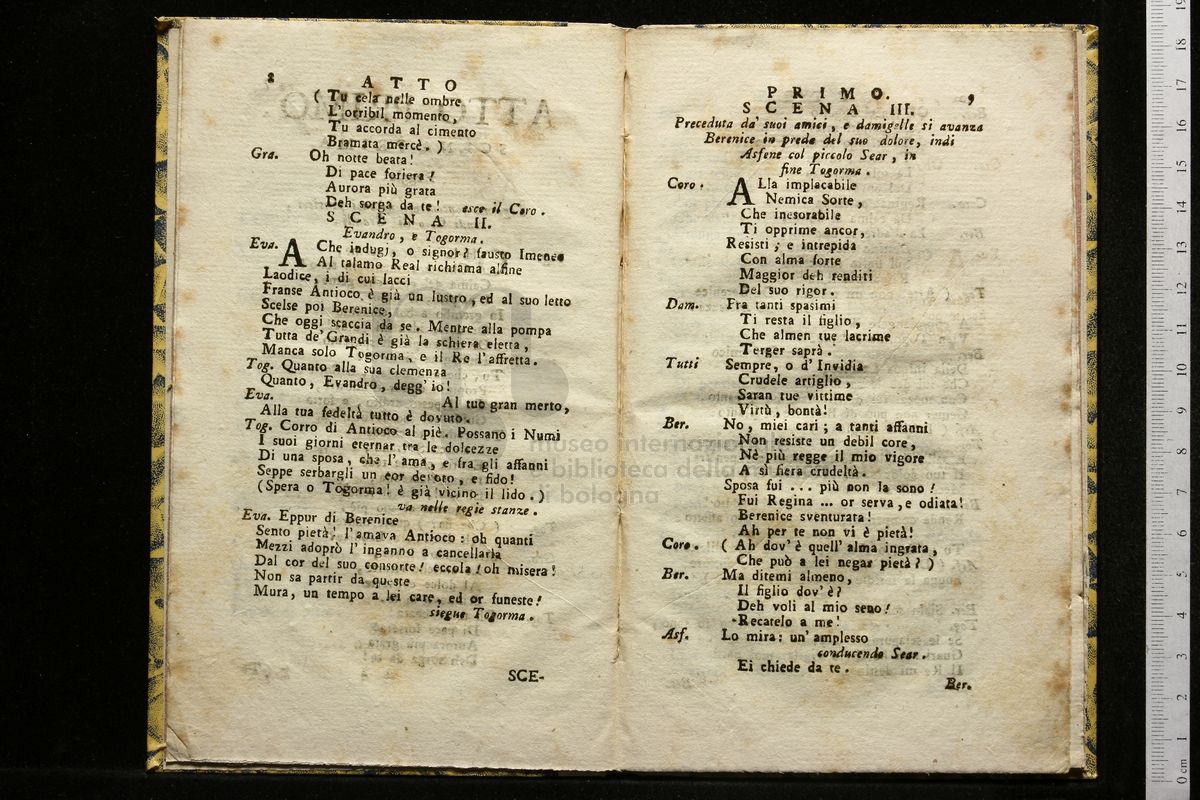 8
ATTO
( Tu cela nelle ombre
L'orribil momento,
Tu accorda al cimento
Bramata mercè. )
Gra. Oh notte beata!
Di pace foriera!
Aurora più grata
Deh sorga da te! esce il Coro.
SCENA II.
Evandro, e Togorma.
Eva. A Che indugj, o signor? fausto Imeneo
Al talamo Real richiama alfine
Laodice, i di cui lacci
Franse Antioco è già un lustro, ed al suo letto
Scelse poi Berenice,
Che oggi scaccia da se. Mentre alla pompa
Tutta de' Grandi è già la schiera eletta,
Manca solo Togorma, e il Re l'affretta.
Tog. Quanto alla sua clemenza
Quanto, Evandro, degg' io!
Eva. Al tuo gran merto,
Alla tua fedeltà tutto è dovuto.
Tog. Corro di Antioco al piè. Possano i Numi
I suoi giorni eternar tra le dolcezze
Di una sposa, che l'ama, e fra gli affanni
Seppe serbargli un cor devoto, e fido!
(Spera o Togorma! è già vicino il lido.)
va nelle regie stanze.
Eva. Eppur di Berenice
Sento pietà! l'amava Antioco: oh quanti
Mezzi adoprò l'inganno a cancellarla
Dal cor del suo consorte! eccola! oh misera!
Non sa partir da queste
Mura, un tempo a lei care, ed or funeste!
siegue Togorma.
SCE-
PRIMO. 9
SCENA III.
Preceduta da' suoi amici, e damigelle si avanza
Berenice in preda del suo dolore, indi
Asfene col piccolo Sear, in
fine Togorma.
Coro. ALla implacabile
Nemica Sorte,
Che inesorabile
Ti opprime ancor,
Resisti; e intrepida
Con alma forte
Maggior deh renditi
Del suo rigor.
Dam. Fra tanti spasimi
Ti resta il figlio,
Che almen tue lacrime
Terger saprà.
Tutti Sempre, o d' Invidia
Crudele artiglio,
Saran tue vittime
Virtù, bontà!
Ber. No, miei cari; a tanti affanni
Non resiste un debil core,
Nè più regge il mio vigore
A sì fiera crudeltà.
Sposa fui ... più non la sono!
Fui Regina ... or serva, e odiata!
Berenice sventurata!
Ah per te non vi è pietà!
Coro. ( Ah dov' è quell' alma ingrata,
Che può a lei negar pietà? )
Ber. Ma ditemi almeno,
Il figlio dov' è?
Deh voli al mio seno!
Recatelo a me!
Asf. Lo mira: un' amplesso
conducendo Sear.
Ei chiede da te.
Ber.
museo internazionale
e biblioteca della
di bologna
0 cm 1 2 3 4 5 6 7 8 9 10 11 12 13 14 15 16 17 18 19